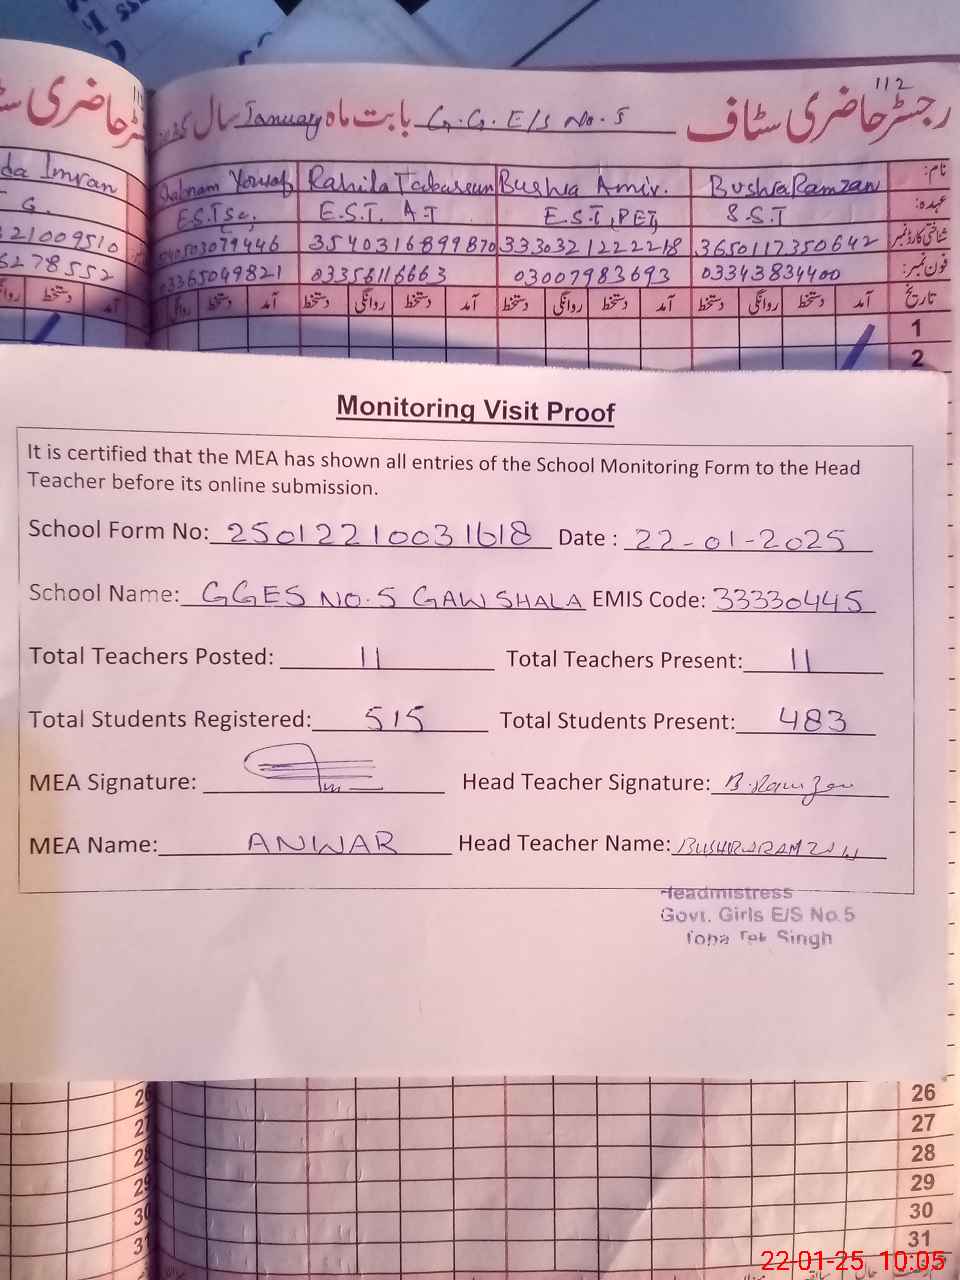 112
رجسٹر حاضری سٹاف G.G. E/S No. 5 بابت ماہ January سال
نام: Bushra Ramzan Bushra Amir. Rahila Tabassum Shabnam Yousaf da Imran
عہدہ: S.S.T E.S.T, PET E.S.T. A.T E.S.T Sc. G.
شناختی کارڈ نمبر 3650117350642 3330321222218 3540316899870 503079446 21009510
فون نمبر: 03343834400 03007983693 03356116663 03365049821 6278552
تاریخ آمد دستخط روانگی دستخط آمد روانگی دستخط آمد دستخط روانگی دستخط آمد دستخط
1
2
Monitoring Visit Proof
It is certified that the MEA has shown all entries of the School Monitoring Form to the Head
Teacher before its online submission.
School Form No: 25012210031618 Date : 22-01-2025
School Name: GGES NO.5 GAWSHALA EMIS Code: 33330445
Total Teachers Posted: 11 Total Teachers Present: 11
Total Students Registered: 515 Total Students Present: 483
MEA Signature: Head Teacher Signature: B.Ramzan
MEA Name: ANWAR Head Teacher Name: BUSHRA RAMZAN
Headmistress
Govt. Girls E/S No.5
Toba Tek Singh
26 26
27 27
28 28
29 29
30 30
31 31
22-01-25 10:05